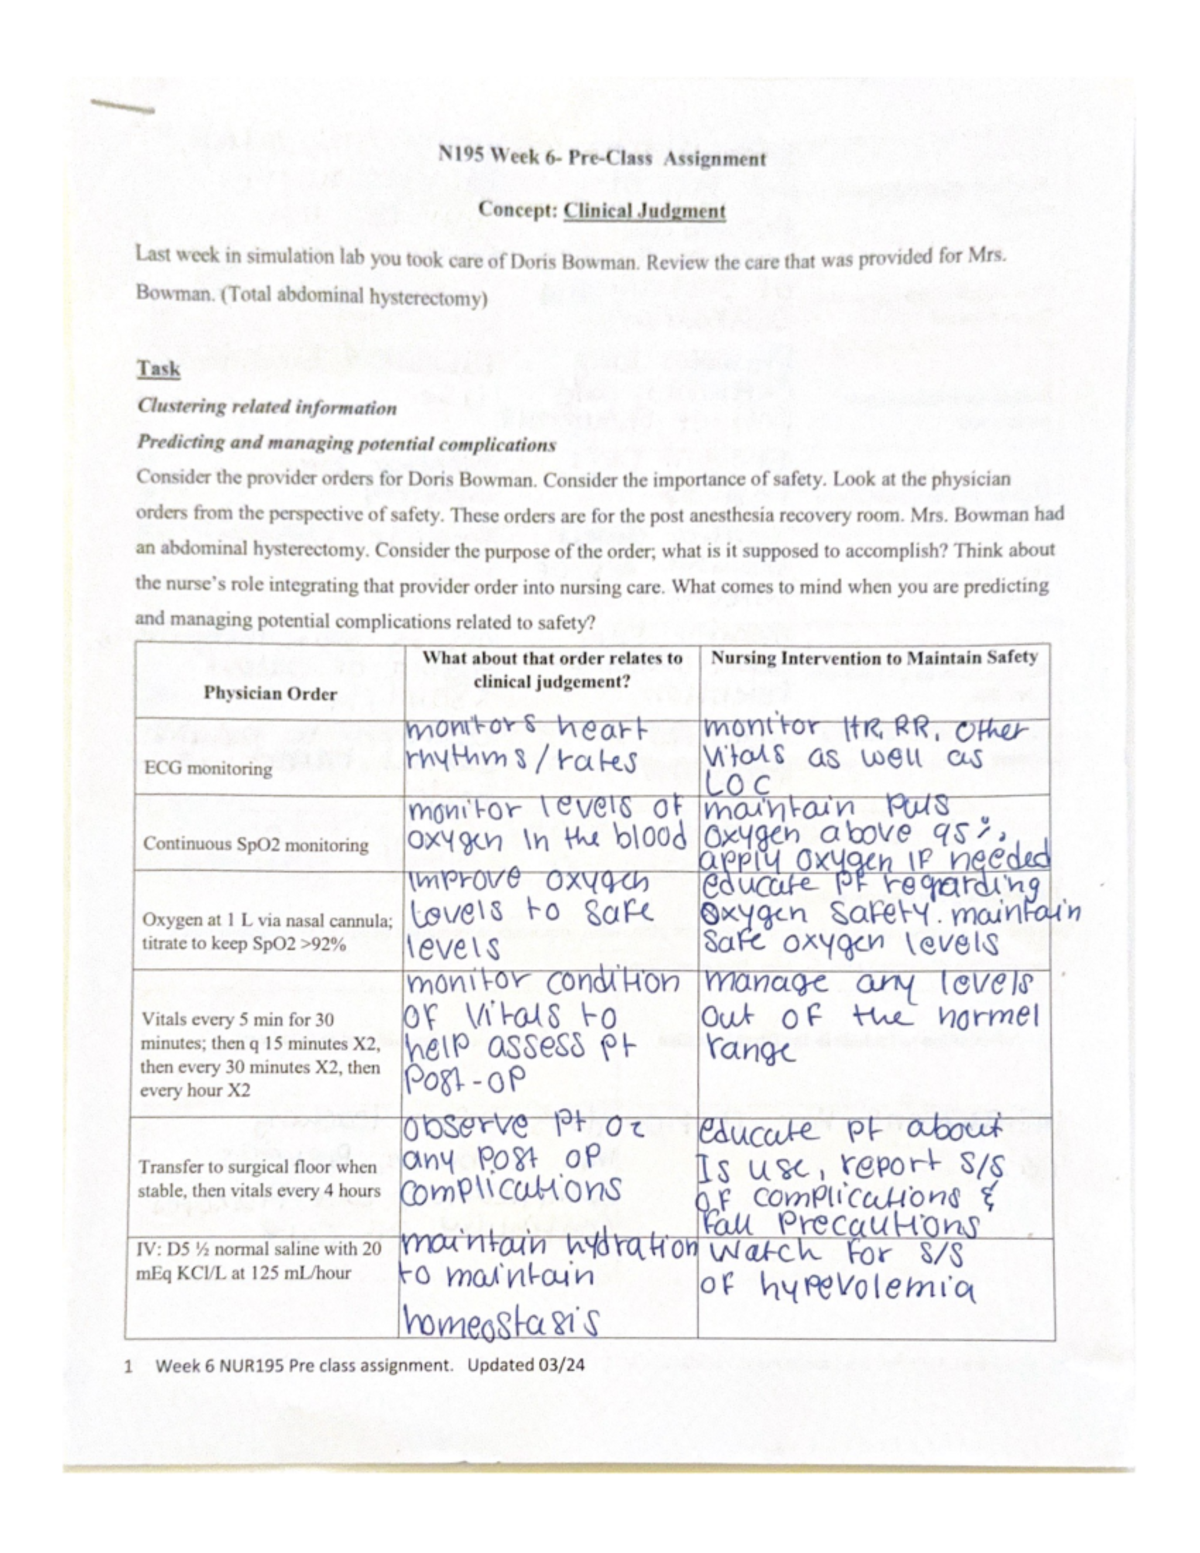 N195 Week 6- Pre-Class Assignment
Concept: Clinical Judgment
Last week in simulation lab you took care of Doris Bowman. Review the care that was provided for Mrs.
Bowman. (Total abdominal hysterectomy)
Task
Clustering related information
Predicting and managing potential complications
Consider the provider orders for Doris Bowman. Consider the importance of safety. Look at the physician
orders from the perspective of safety. These orders are for the post anesthesia recovery room. Mrs. Bowman had
an abdominal hysterectomy. Consider the purpose of the order; what is it supposed to accomplish? Think about
the nurse's role integrating that provider order into nursing care. What comes to mind when you are predicting
and managing potential complications related to safety?
Physician Order
What about that order relates to
clinical judgement?
Nursing Intervention to Maintain Safety
ECG monitoring
monitors heart
rhythms/rates
monitor HR, RR, other
vitals as well as
LOC
Continuous SpO2 monitoring
monitor levels of
oxygen in the blood
maintain puls
oxygen above 95%,
apply oxygen if needed
Oxygen at 1 L via nasal cannula;
titrate to keep SpO2 >92%
improve oxygen
levels to safe
levels
educate pt regarding
oxygen safety. maintain
safe oxygen levels
Vitals every 5 min for 30
minutes; then q 15 minutes X2,
then every 30 minutes X2, then
every hour X2
monitor condition
of vitals to
help assess pt
post-op
manage any levels
out of the normel
range
Transfer to surgical floor when
stable, then vitals every 4 hours
observe pt
any post op
complications
educate pt about
Is use, report s/s
of complications &
fall precautions
IV: D5 ½ normal saline with 20
mEq KCl/L at 125 mL/hour
maintain hydration
to maintain
homeostasis
watch for s/s
of hypevolemia
1 Week 6 NUR195 Pre class assignment. Updated 03/24